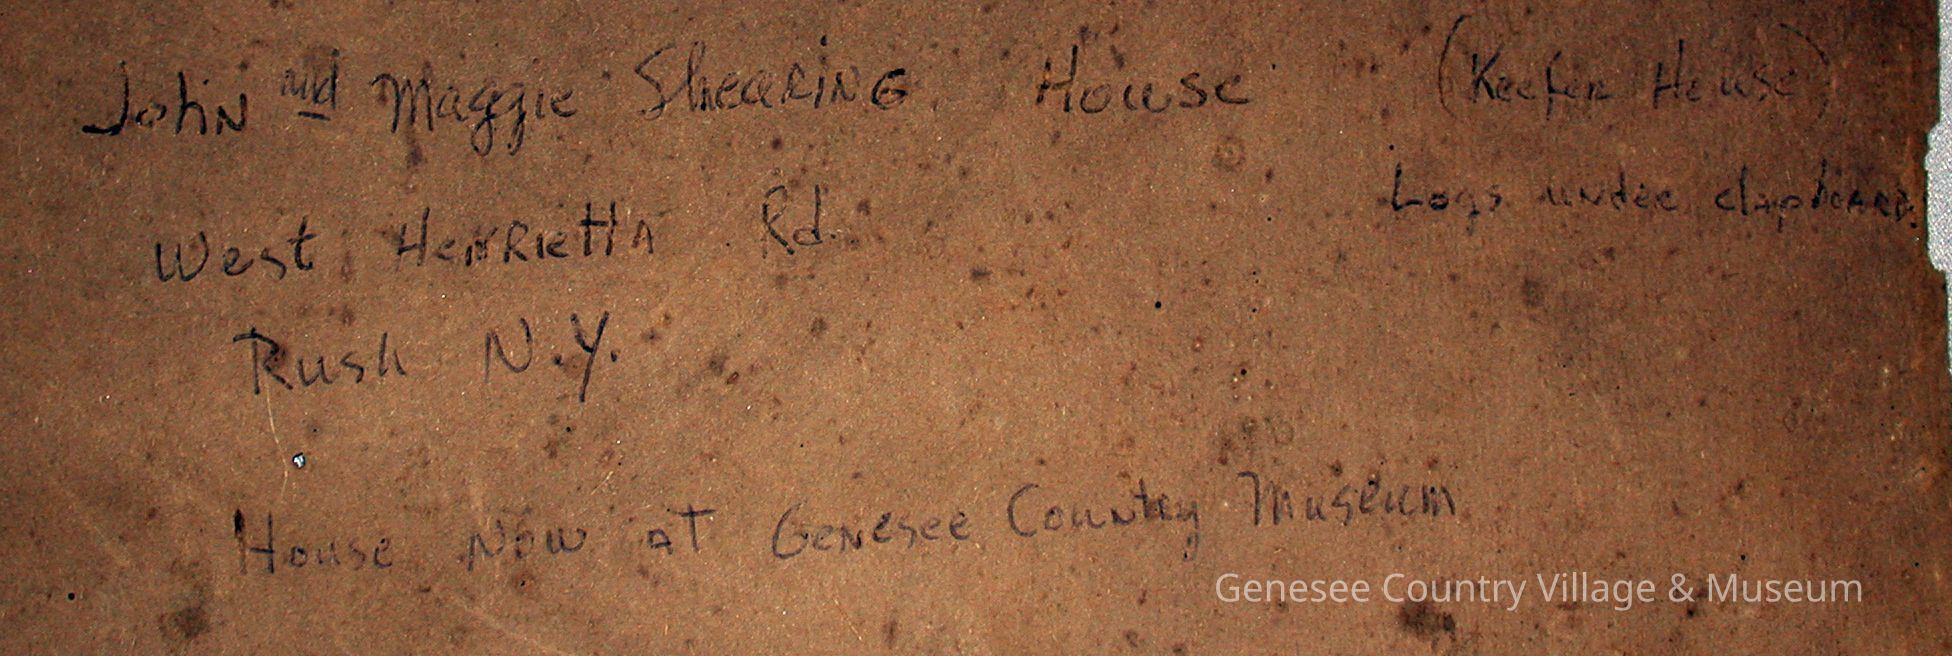 John and Maggie Shearing House (Keefer House)
Logs under clapboard.
West Henrietta Rd.
Rush N.Y.
House Now at Genesee Country Museum
Genesee Country Village & Museum